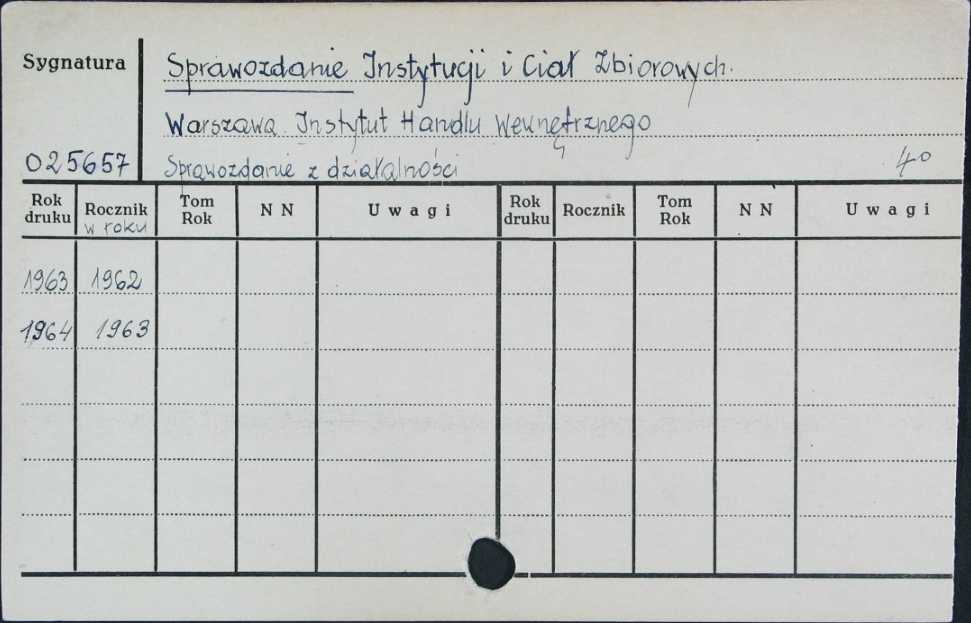 Sygnatura
Sprawozdanie Instytucji i Ciał Zbiorowych.
Warszawa. Instytut Handlu Wewnętrznego
025657 Sprawozdanie z działalności 4°
Rok druku Rocznik w roku Tom Rok NN Uwagi Rok druku Rocznik Tom Rok NN Uwagi
1963 1962
1964 1963